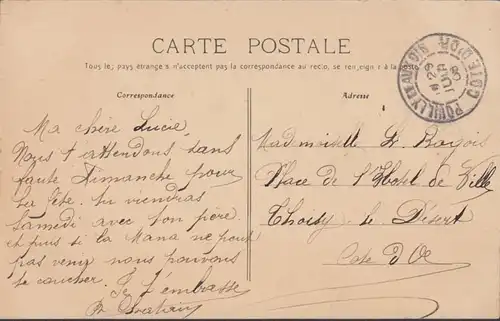 CARTE POSTALE
Tous les pays étrangers n'acceptent pas la correspondance au recto, se renseigner à la poste
Correspondance
Adresse
POUILLY EN AUXOIS
COTE D'OR
29
08
Ma chère Lucie,
Nous t'attendons sans
faute Dimanche pour
la fête. tu viendras
samedi avec ton père
et puis si la Mana ne peut
pas venir nous pouvons
te coucher.
Je t'embrasse
Mademoiselle L.
Place de l'Hotel de Ville
Thoisy le Désert
Cote d'Or